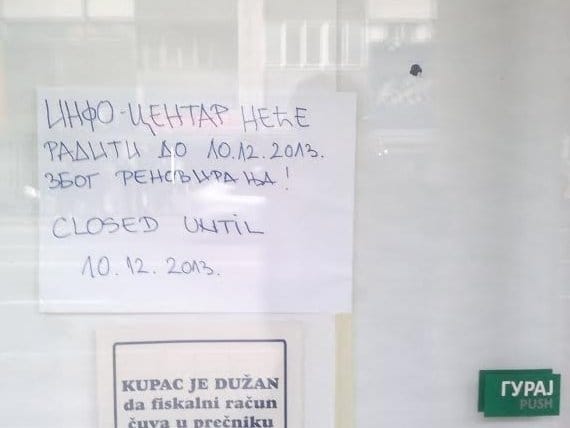 ИНФО-ЦЕНТАР НЕЋЕ
РАДИТИ ДО 10.12.2013.
ЗБОГ РЕНОВИРАЊА!
CLOSED UNTIL
10.12.2013.
KUPAC JE DUŽAN
da fiskalni račun
čuva u prečniku
ГУРАЈ
PUSH